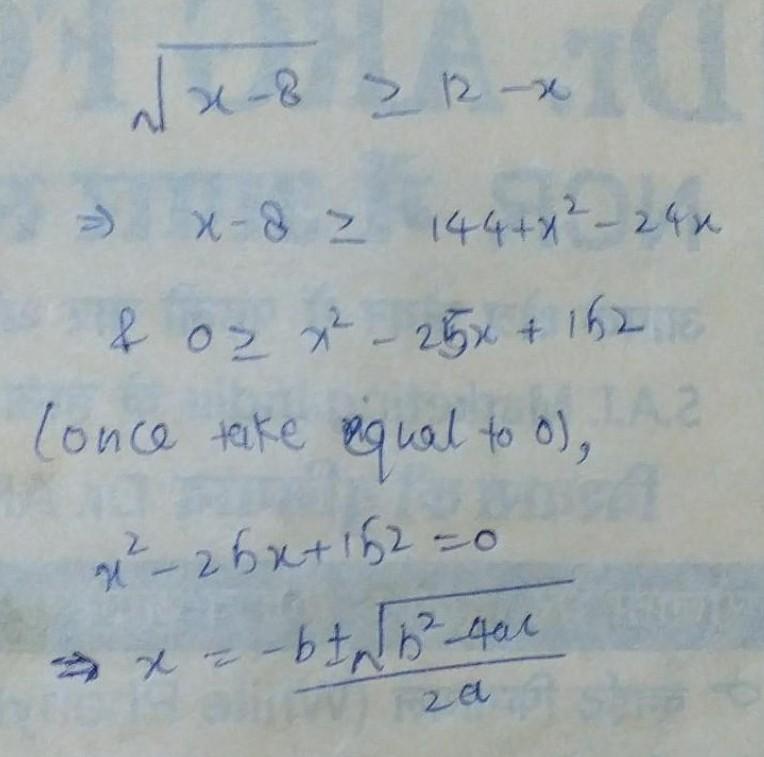 √(x-8) ≥ 12-x
⇒ x-8 ≥ 144+x²-24x
& 0 ≥ x² - 25x + 152
(once take equal to 0),
x² - 25x + 152 = 0
⇒ x = -b±√(b²-4ac)/2a